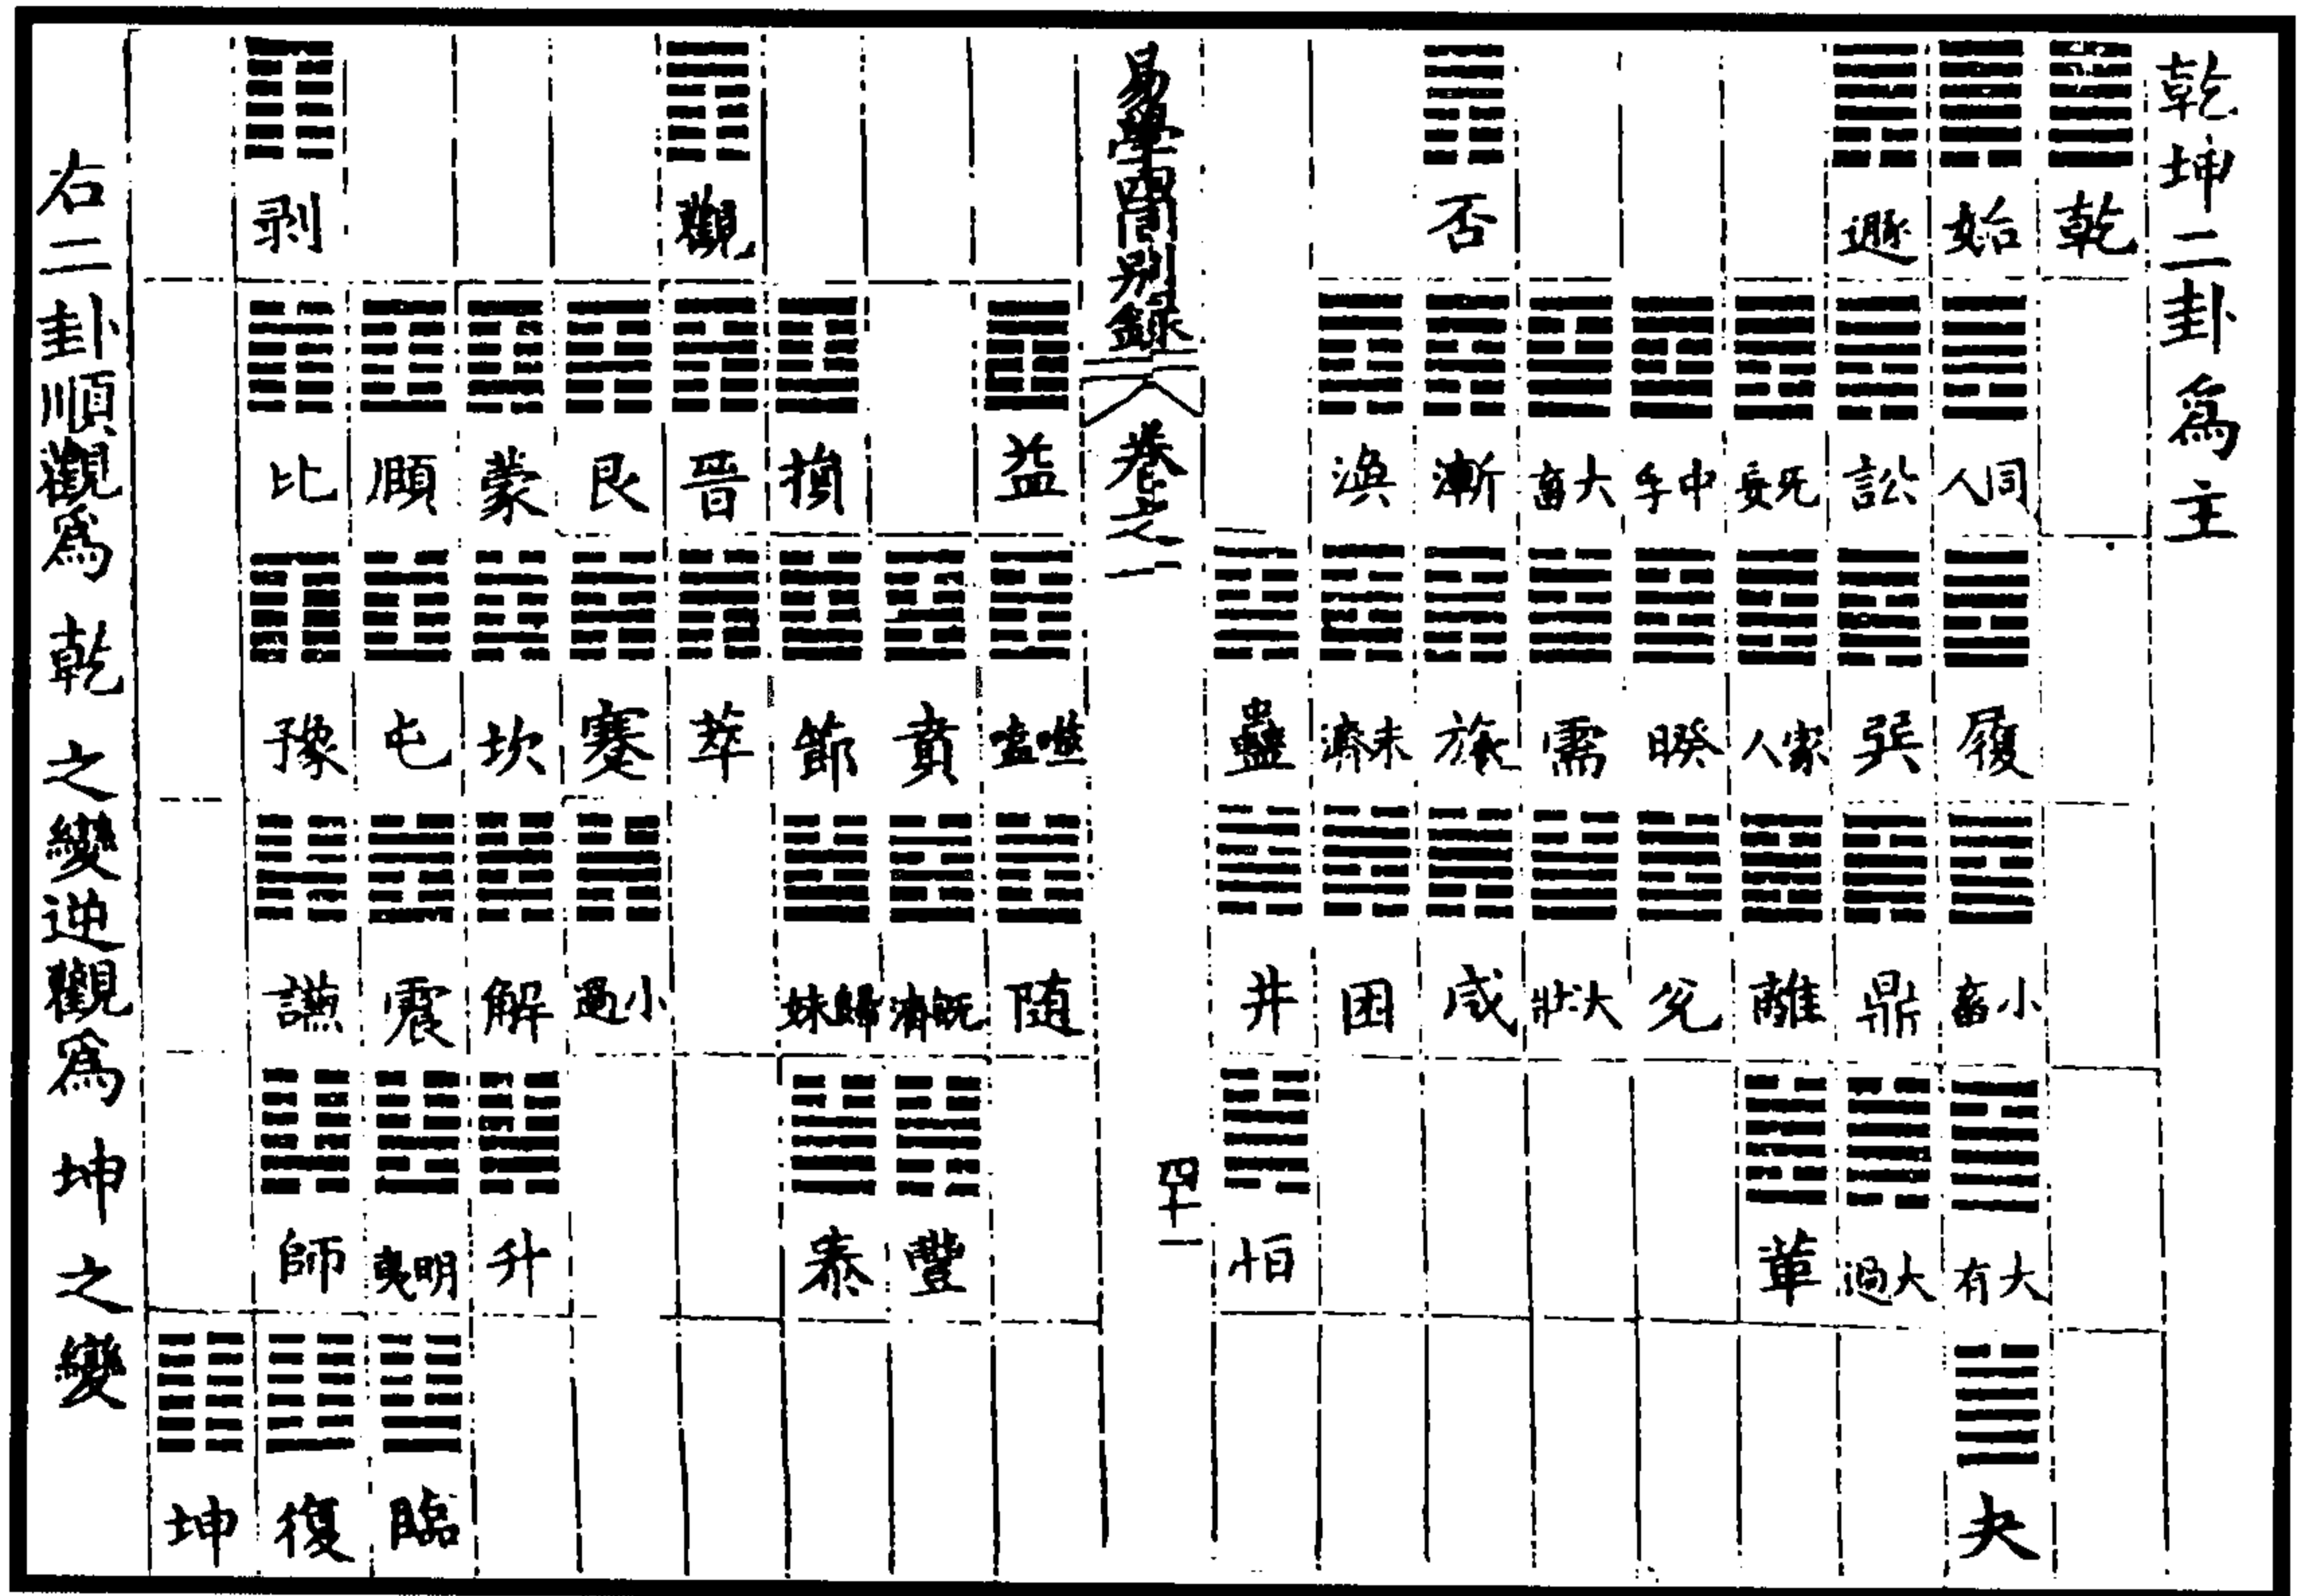 乾坤二卦爲主
乾
姤 同人 履 小畜 大有 夬
遯 訟 巽 鼎 大過
无妄 家人 離 革
中孚 睽 兌
大畜 需 大壯
否 漸 旅 咸
渙 未濟 困
蠱 井 恒
易學 別錄 卷上之一 四十一
益 噬嗑 随
賁 既濟 豐
損 節 歸妹 泰
觀 晉 萃
艮 蹇 小過
蒙 坎 解 升 臨
頤 屯 震 明夷 復
剥 比 豫 謙 師
坤
右二卦順觀爲乾之變逆觀爲坤之變